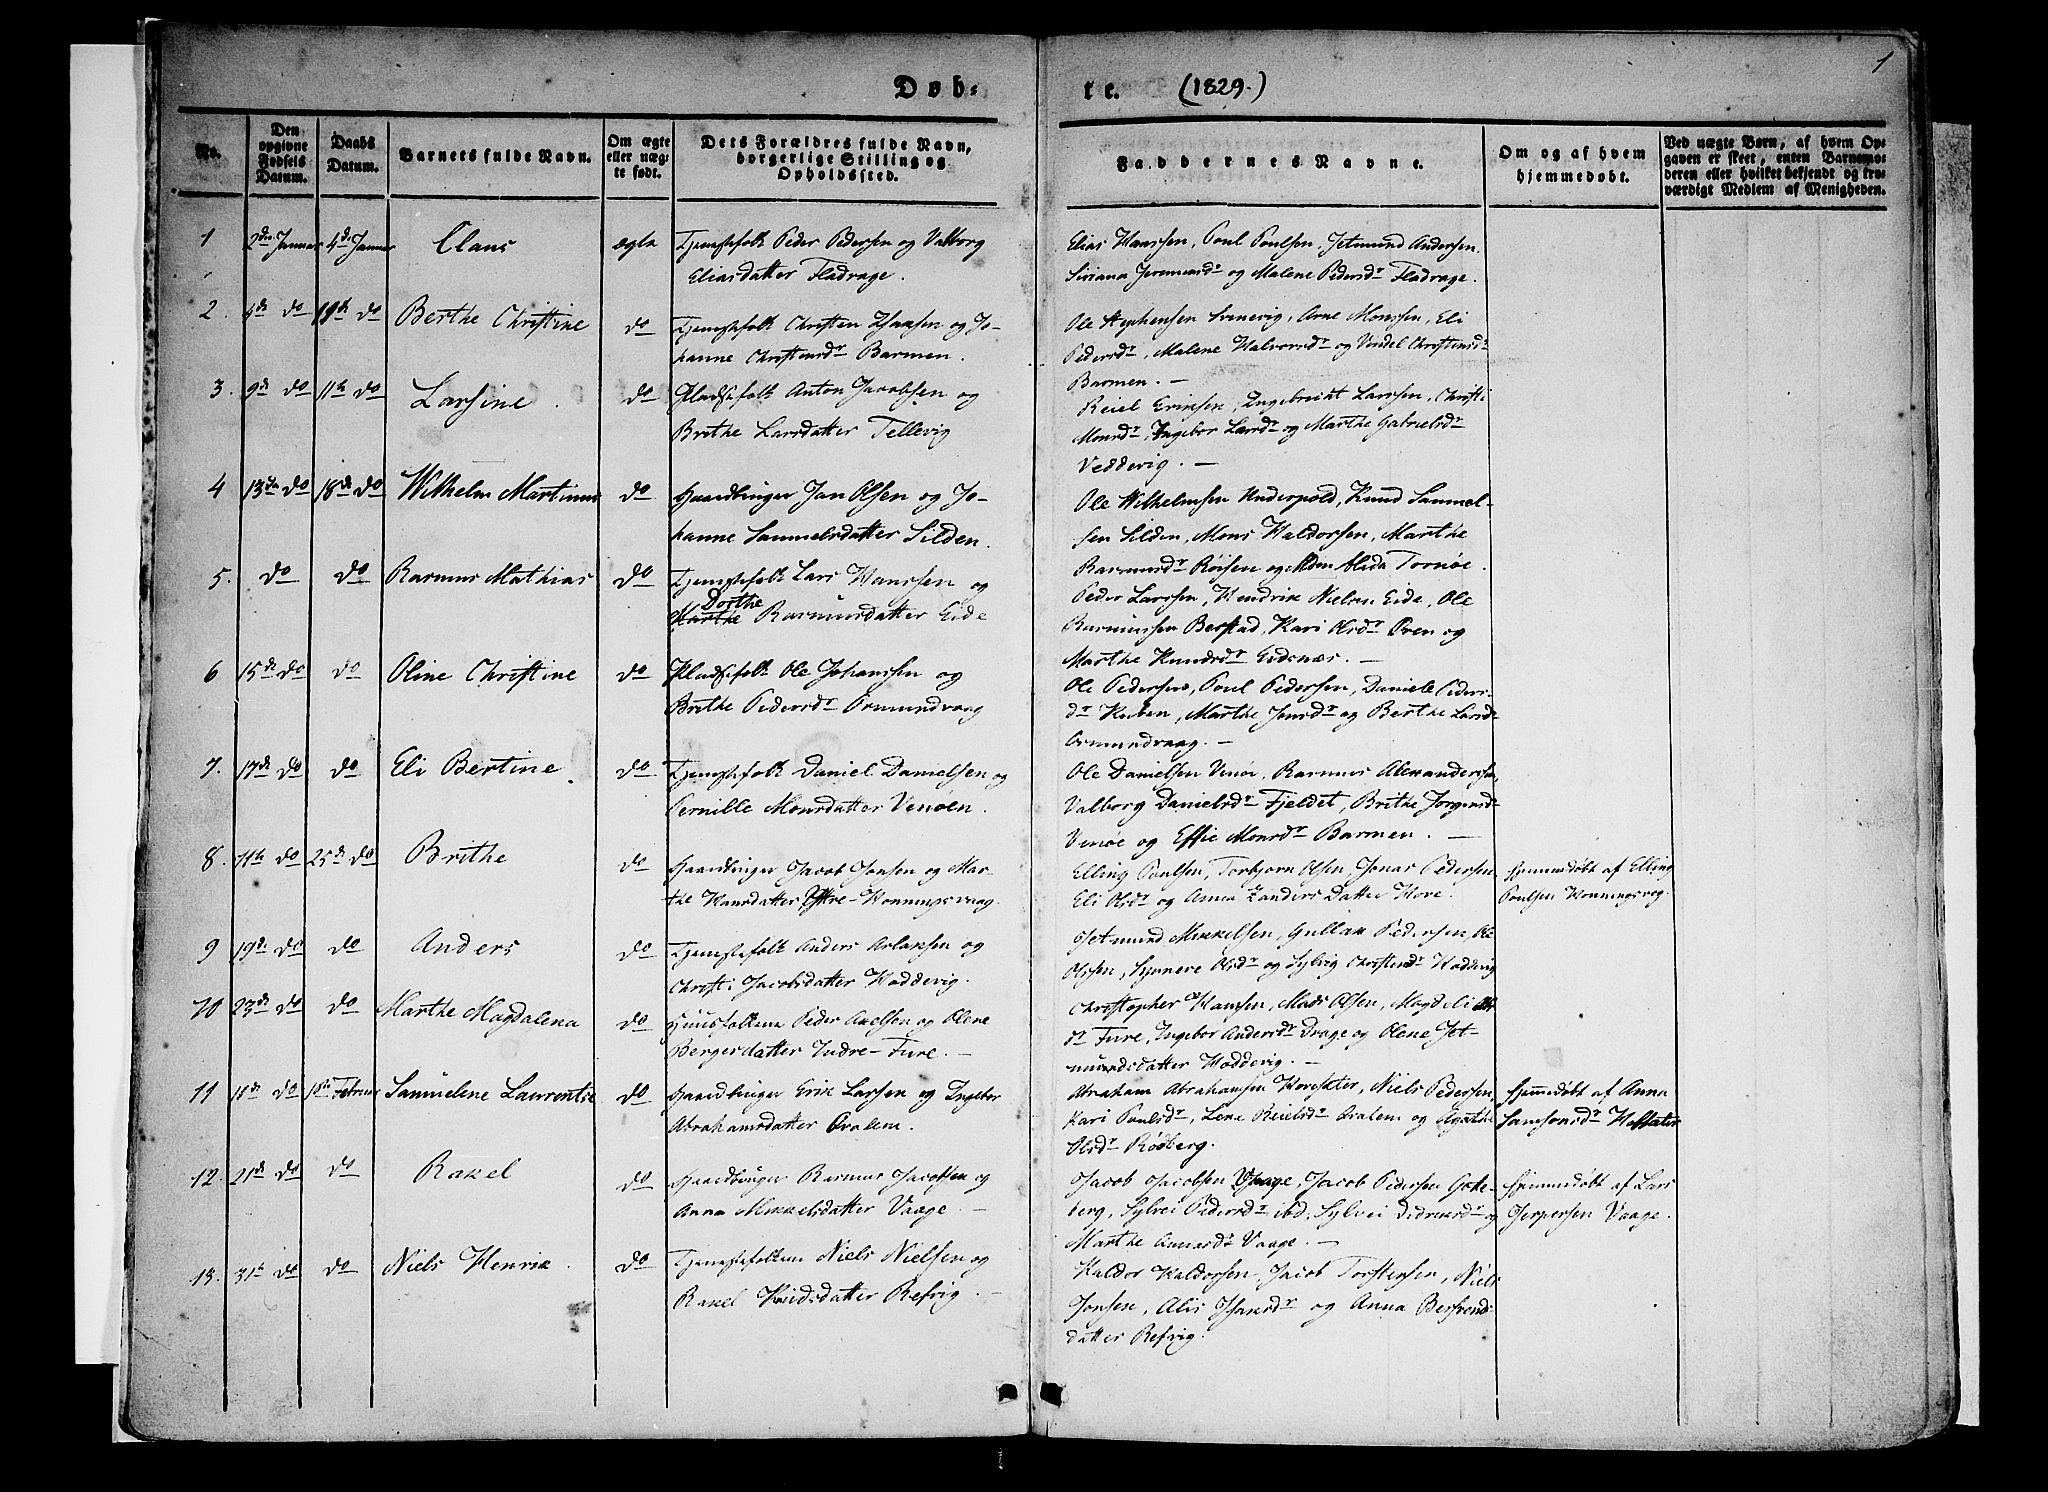 1
Døb-
te. (1829.)
No.
Den opgivne Fødsels Datum.
Daabs Datum.
Barnets fulde Navn.
Om ægte eller uægte født.
Dets Forældres fulde Navn, borgerlige Stilling og Opholdssted.
Faddernes Navne.
Om og af hvem hjemmedøbt.
Ved uægte Børn, af hvem Opgaven er skeet, enten Barnemoderen eller hvilket bekjendt og troværdigt Medlem af Menigheden.
1 2den Januar 4de Januar Claus ægte Tjenestefolk Peder Pedersen og Valborg
Eliasdatter Fladrage.
Elias Hanssen, Poul Poulsen, Jetmund Andersen
Siviana Jeremiasdr og Malene Pedersdr Fladrage.
2. do do Berthe Christine do Tjenestefolk Christen Isaksen og Jo-
hanne Christensdr Barmen.
Ole Stephensen Srinevig, Arne Monssen, Eli
Pedersdr, Malene Halvorsdr og Vendel Christensdr
Barmen. —
3. 9de do 11te do Larsine do Pladsefolk Anton Jacobsen og
Brithe Larsdatter Tellevig
Reiel Eriksen, Ingebricht Larssen, Christi
Monsdr, Ingebor Larsdr og Marthe Gabrielsdr
Vedvig. —
4 13de do 18de do Wilhelm Martinus do Gaardbruger Jan Olsen og Jo-
hanne Sammelsdatter Silden.
Ole Wilhelmsen Hunderpold, Knud Sammel-
sen Silden, Mons Haldorsen, Marthe
Rasmusdr Røisen og Alida Tornøe.
5. do do Rasmus Mathias do Tjenestefolk Lars Hanssen og
Dorthe Rasmusdatter Eide
Peder Larssen, Hendrik Nielsen Eide, Ole
Rasmussen Berstad, Kari Olsdr Oren og
Marthe Knudsdr Eidsnæs. —
6 15de do do Oline Christine do Pladsefolk Ole Johanssen og
Brithe Pedersdr Ormundvaag
Ole Pedersen, Poul Pedersen, Daniele Peders-
dr Kuben, Marthe Jonsdr og Berthe Larsdr
Ormundvaag. —
7. 17de do do Eli Bertine do Tjenestefolk Daniel Danielsen og
Pernille Monsdatter Venøen.
Ole Danielsen Venøe, Rasmus Alexandersen,
Valborg Danielsdr Fjeldet, Brithe Jørgensdr
Venøe og Effie Monsdr Barmen. —
8. 11te do 25de do Brithe do Gaardbruger Jacob Jonsen og Mar-
the Hansdatter Ytre-Honningsvaag.
Elling Poulsen, Torbjørn Olsen, Jonas Pedersen
Eli Olsdr og Anna Zanders Datter Hove.
hjemmedøbt af Elling
Poulsen Honningsvog.
9 19de do do Anders do Tjenestefolk Anders Aslaksen og
Christi Jacobsdatter Hoddevig.
Jetmund Mikkelsen, Gullak Pedersen, Ole
Olssen, Synneve Olsdr og Sylvig Christensdr Hoddevig
10 23de do do Marthe Magdalena do Huusfolkene Peder Axelsen og Olene
Bergersdatter Indre-Fure. —
Christopher Hanssen, Mads Olsen, Magdeli Ols-
dr Fure, Ingebor Andersdr Drage og Olene Jet-
mundsdatter Hoddevig. —
11 11te do Februar Samuelene Laurentse do Gaardbruger Erik Larssen og Ingebor
Abrahamsdatter Hvalem.
Abraham Abrahamsen Hovesæter, Niels Pedersen
Kari Poulsdr, Lene Reielsdr Hvalem og Agathe
Olsdr Rødberg.
hjemmedøbt af Anna
Samsonsdr
12. 21de do do Rakel do Gaardbruger Rasmus Jacobsen og
Anna Mikkelsdatter Vaage. —
Jacob Jacobsen Vaage, Jacob Pedersen Gote-
berg, Sylvei Pedersdr ibd, Sylvei Didriksdr og
Marthe Vaage. —
hjemmedøbt af Lars
Jespersen Vaage.
13. 31te do do Niels Henrik. do Tjenestefolkene Niels Nielsen og
Rakel Knudsdatter Refvig. —
Haldor Haldorsen, Jacob Torstensen, Niels
Jonsen, Alis Isaksdr og Anna Bersvends
datter Refvig.